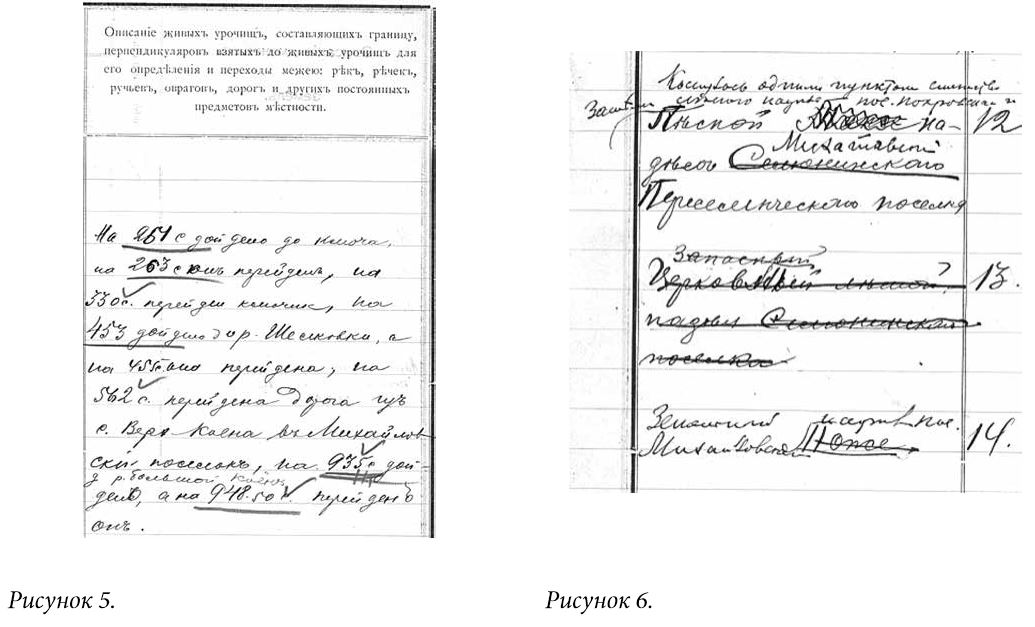 Описаніе живыхъ урочищъ, составляющихъ границу,
перпендикуляровъ взятыхъ до живыхъ урочищъ для
его опредѣленія и переходы межею: рѣкъ, рѣчекъ,
ручьевъ, овраговъ, дорогъ и другихъ постоянныхъ
предметовъ мѣстности.
На 261 с дойдено до ключа,
на 263 с онъ перейденъ, на
330 с. перейден ключик, на
453 дойдено до р. Шелковки, а
на 455 она перейдена, на
562 с. перейдена дорога изъ
с. Верх-Коена въ Михайлов
скій поселокъ, на 935 с дой-
д р. большой Коенъ
дено, а на 948.50 с. перейденъ
онъ.
Рисунок 5.
Коснулось одними пунктом
пос. Покровскаго и
Лѣсной на- 12
Михайловскій
дѣлъ Семионинскаго
Переселенческаго поселка
Запасный
Церковный лѣсной 13.
надѣл Семионинскаго
поселка
Земельный надѣл пос.
Михайловскаго Тоже 14.
Рисунок 6.